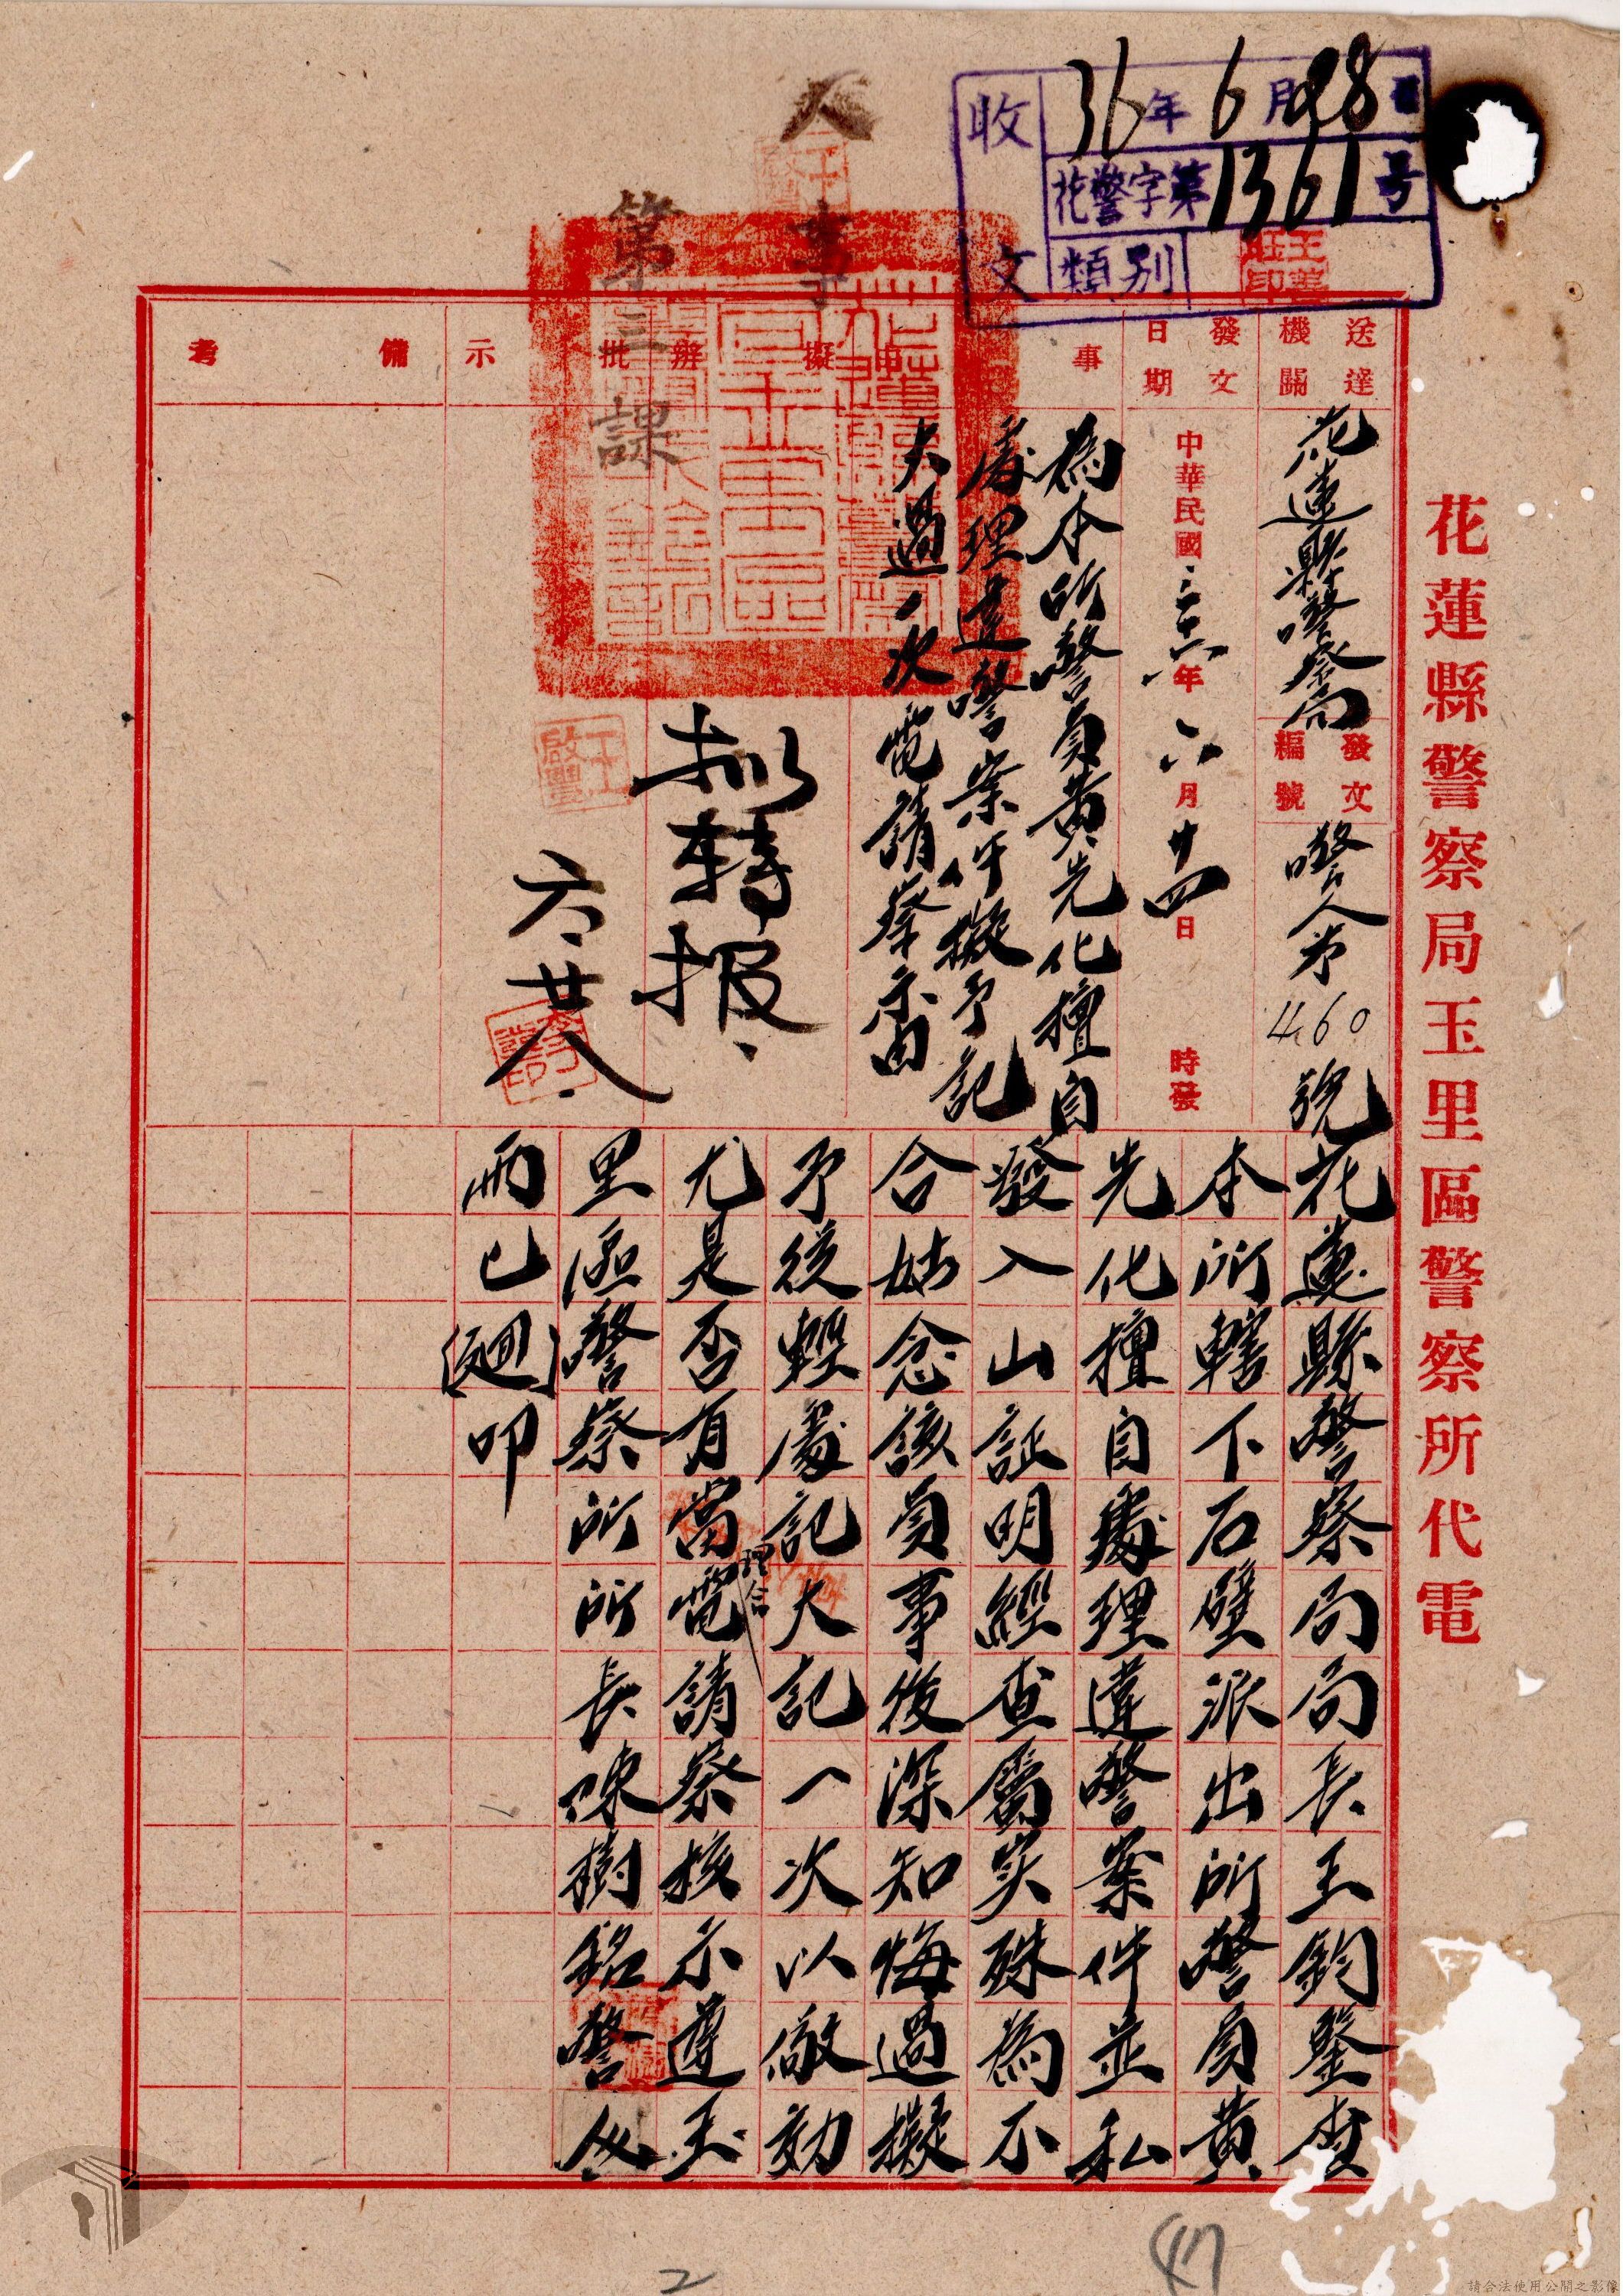 花蓮縣警察局玉里區警察所代電
收文
36年6月28日
花警字第1361号
類別
人事
第三課
送達機關
花蓮縣警察局
發文編號
警人第460號
發文日期
中華民國三六年六月廿四日
時發
事由
為本所警員黃先化擅自
處理違警案件擬予記
大過一次電請察示由
擬辦
擬轉报
批示
六.廿八.
備考
花蓮縣警察局局長王鈞鑒查
本所轄下石壁派出所警員黃
先化擅自處理違警案件並私
發入山証明經查屬实殊為不
合姑念該員事後深知悔過擬
予從輕處記大記一次以儆効
尤是否有當理合電請察核示遵玉
里區警察所所長陳樹銘警人
丙已廻叩
47
2
請合法使用公開之影像